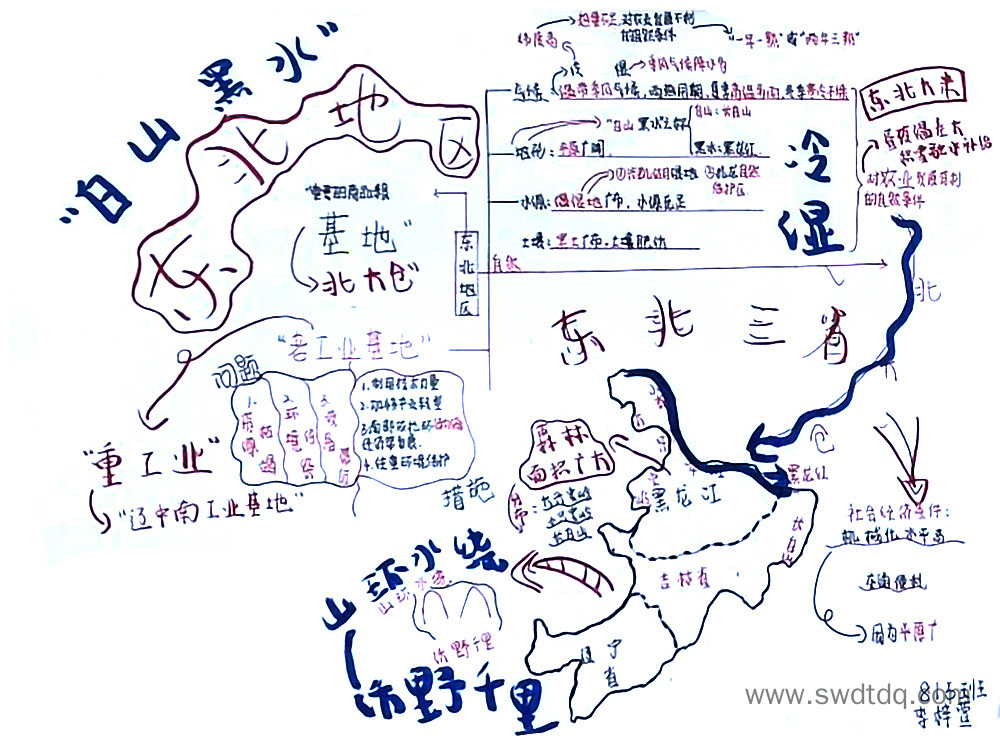 "白山黑水"
东北地区
热量不足,对农业发展不利
的自然条件
纬度高
"一年一熟"或"两年三熟"
冷 湿→季风气候降水多
气候:温带季风气候,雨热同期,夏季高温多雨,冬季寒冷干燥
"白山黑水"之称
白山:长白山
黑水:黑龙江
地形:平原广阔
水源:沼泽地广布,水源充足
土壤:黑土广布,土壤肥沃
冷
湿
东北大米
昼夜温差大
积雪融水补给
对农业发展有利
的自然条件
"重要的商品粮
基地"
北大仓
东北地区
自然
"老工业基地"
问题
1.资源枯竭
2.环境污染
3.设备落后
2.加快产业转型
4.注意环境保护
措施
"重工业"
"辽中南工业基地"
东北三省
北
大
仓
森林
面积广大
分布:大兴安岭
小兴安岭
长白山
黑龙江
黑龙江
长白山
吉林省
辽宁省
社会经济条件:
机械化水平高
交通便利
因为平原广
山环水绕
山环水绕
沃野千里
沃野千里
www.swdtdq.com
815班
李梓萱